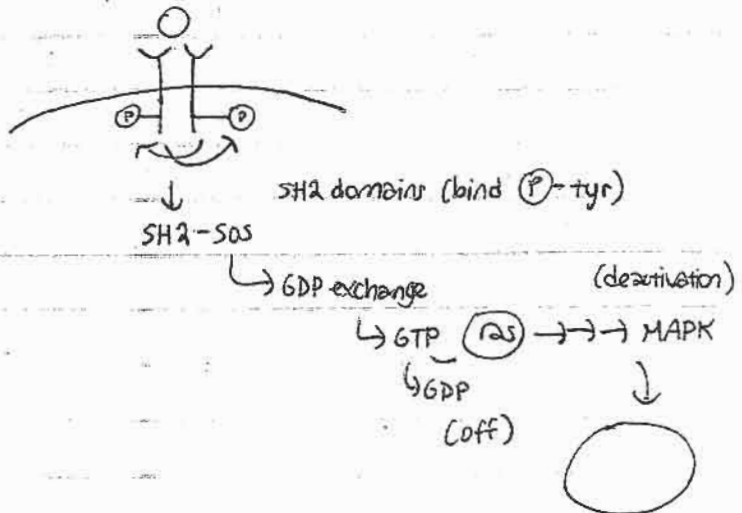 P P
SH2 domains (bind P-tyr)
SH2-SOS
GDP exchange
(deactivation)
GTP ras MAPK
GDP
(off)